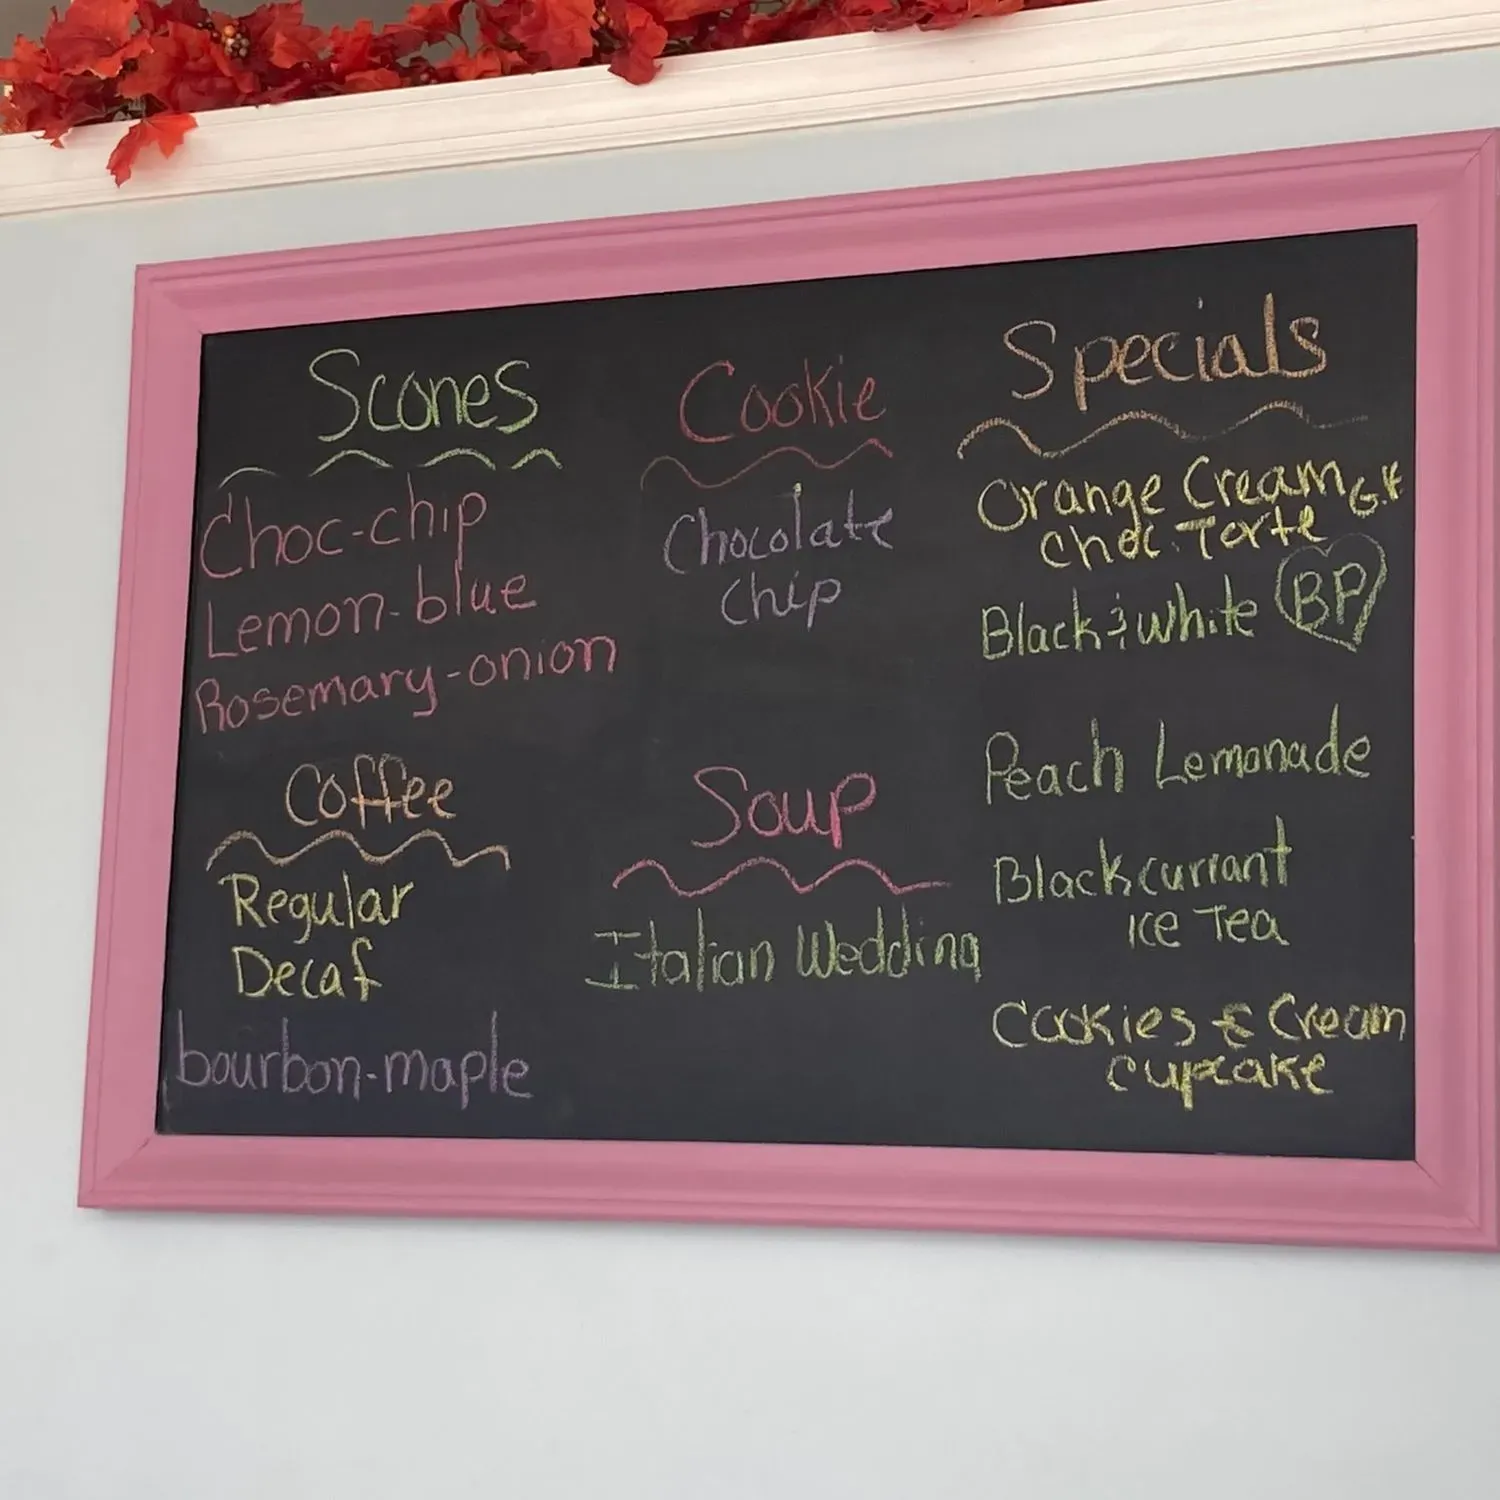 Scones
Choc-chip
Lemon-blue
Rosemary-onion
Coffee
Regular
Decaf
bourbon-maple
Cookie
Chocolate
Chip
Soup
Italian Wedding
Specials
Orange Cream G.F
Choc. Torte
Black & White BP
Peach Lemonade
Blackcurrant
Ice Tea
Cookies & Cream
Cupcake